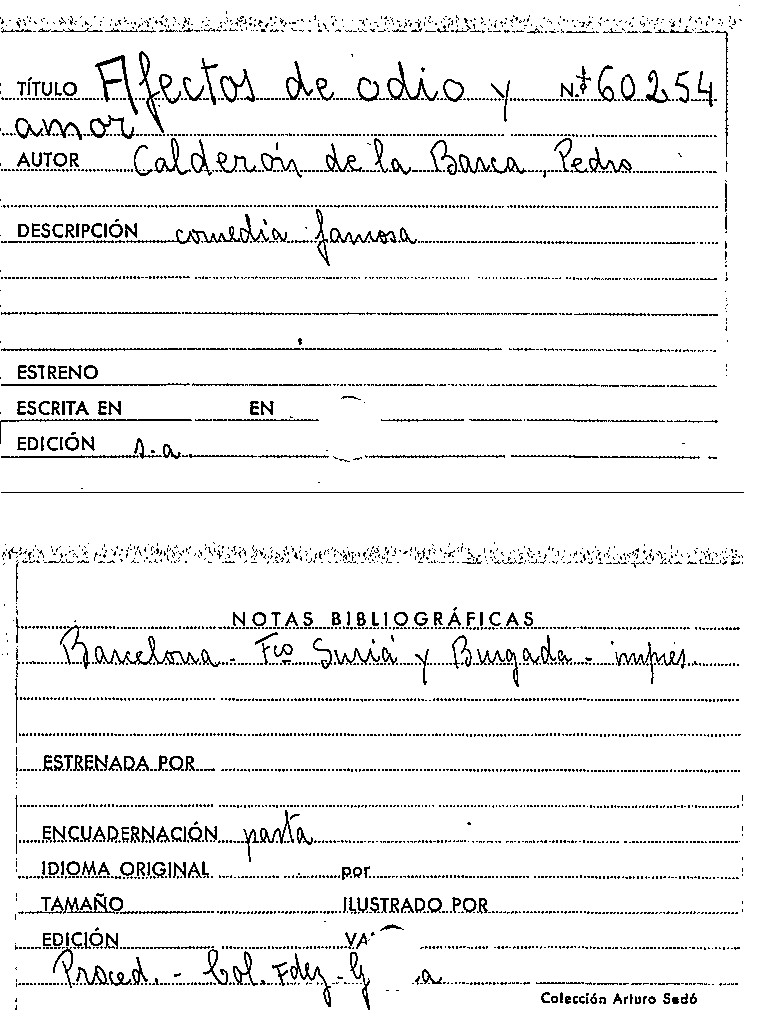 TÍTULO Afectos de odio y N.º 60254
amor
AUTOR Calderón de la Barca, Pedro
DESCRIPCIÓN comedia famosa
ESTRENO
ESCRITA EN EN
EDICIÓN s.a.
NOTAS BIBLIOGRÁFICAS
Barcelona - Fco Suriá y Burgada - impres.
ESTRENADA POR
ENCUADERNACIÓN pasta
IDIOMA ORIGINAL por
TAMAÑO ILUSTRADO POR
EDICIÓN
Proced. - Col. Fdez -
Colección Arturo Sedó